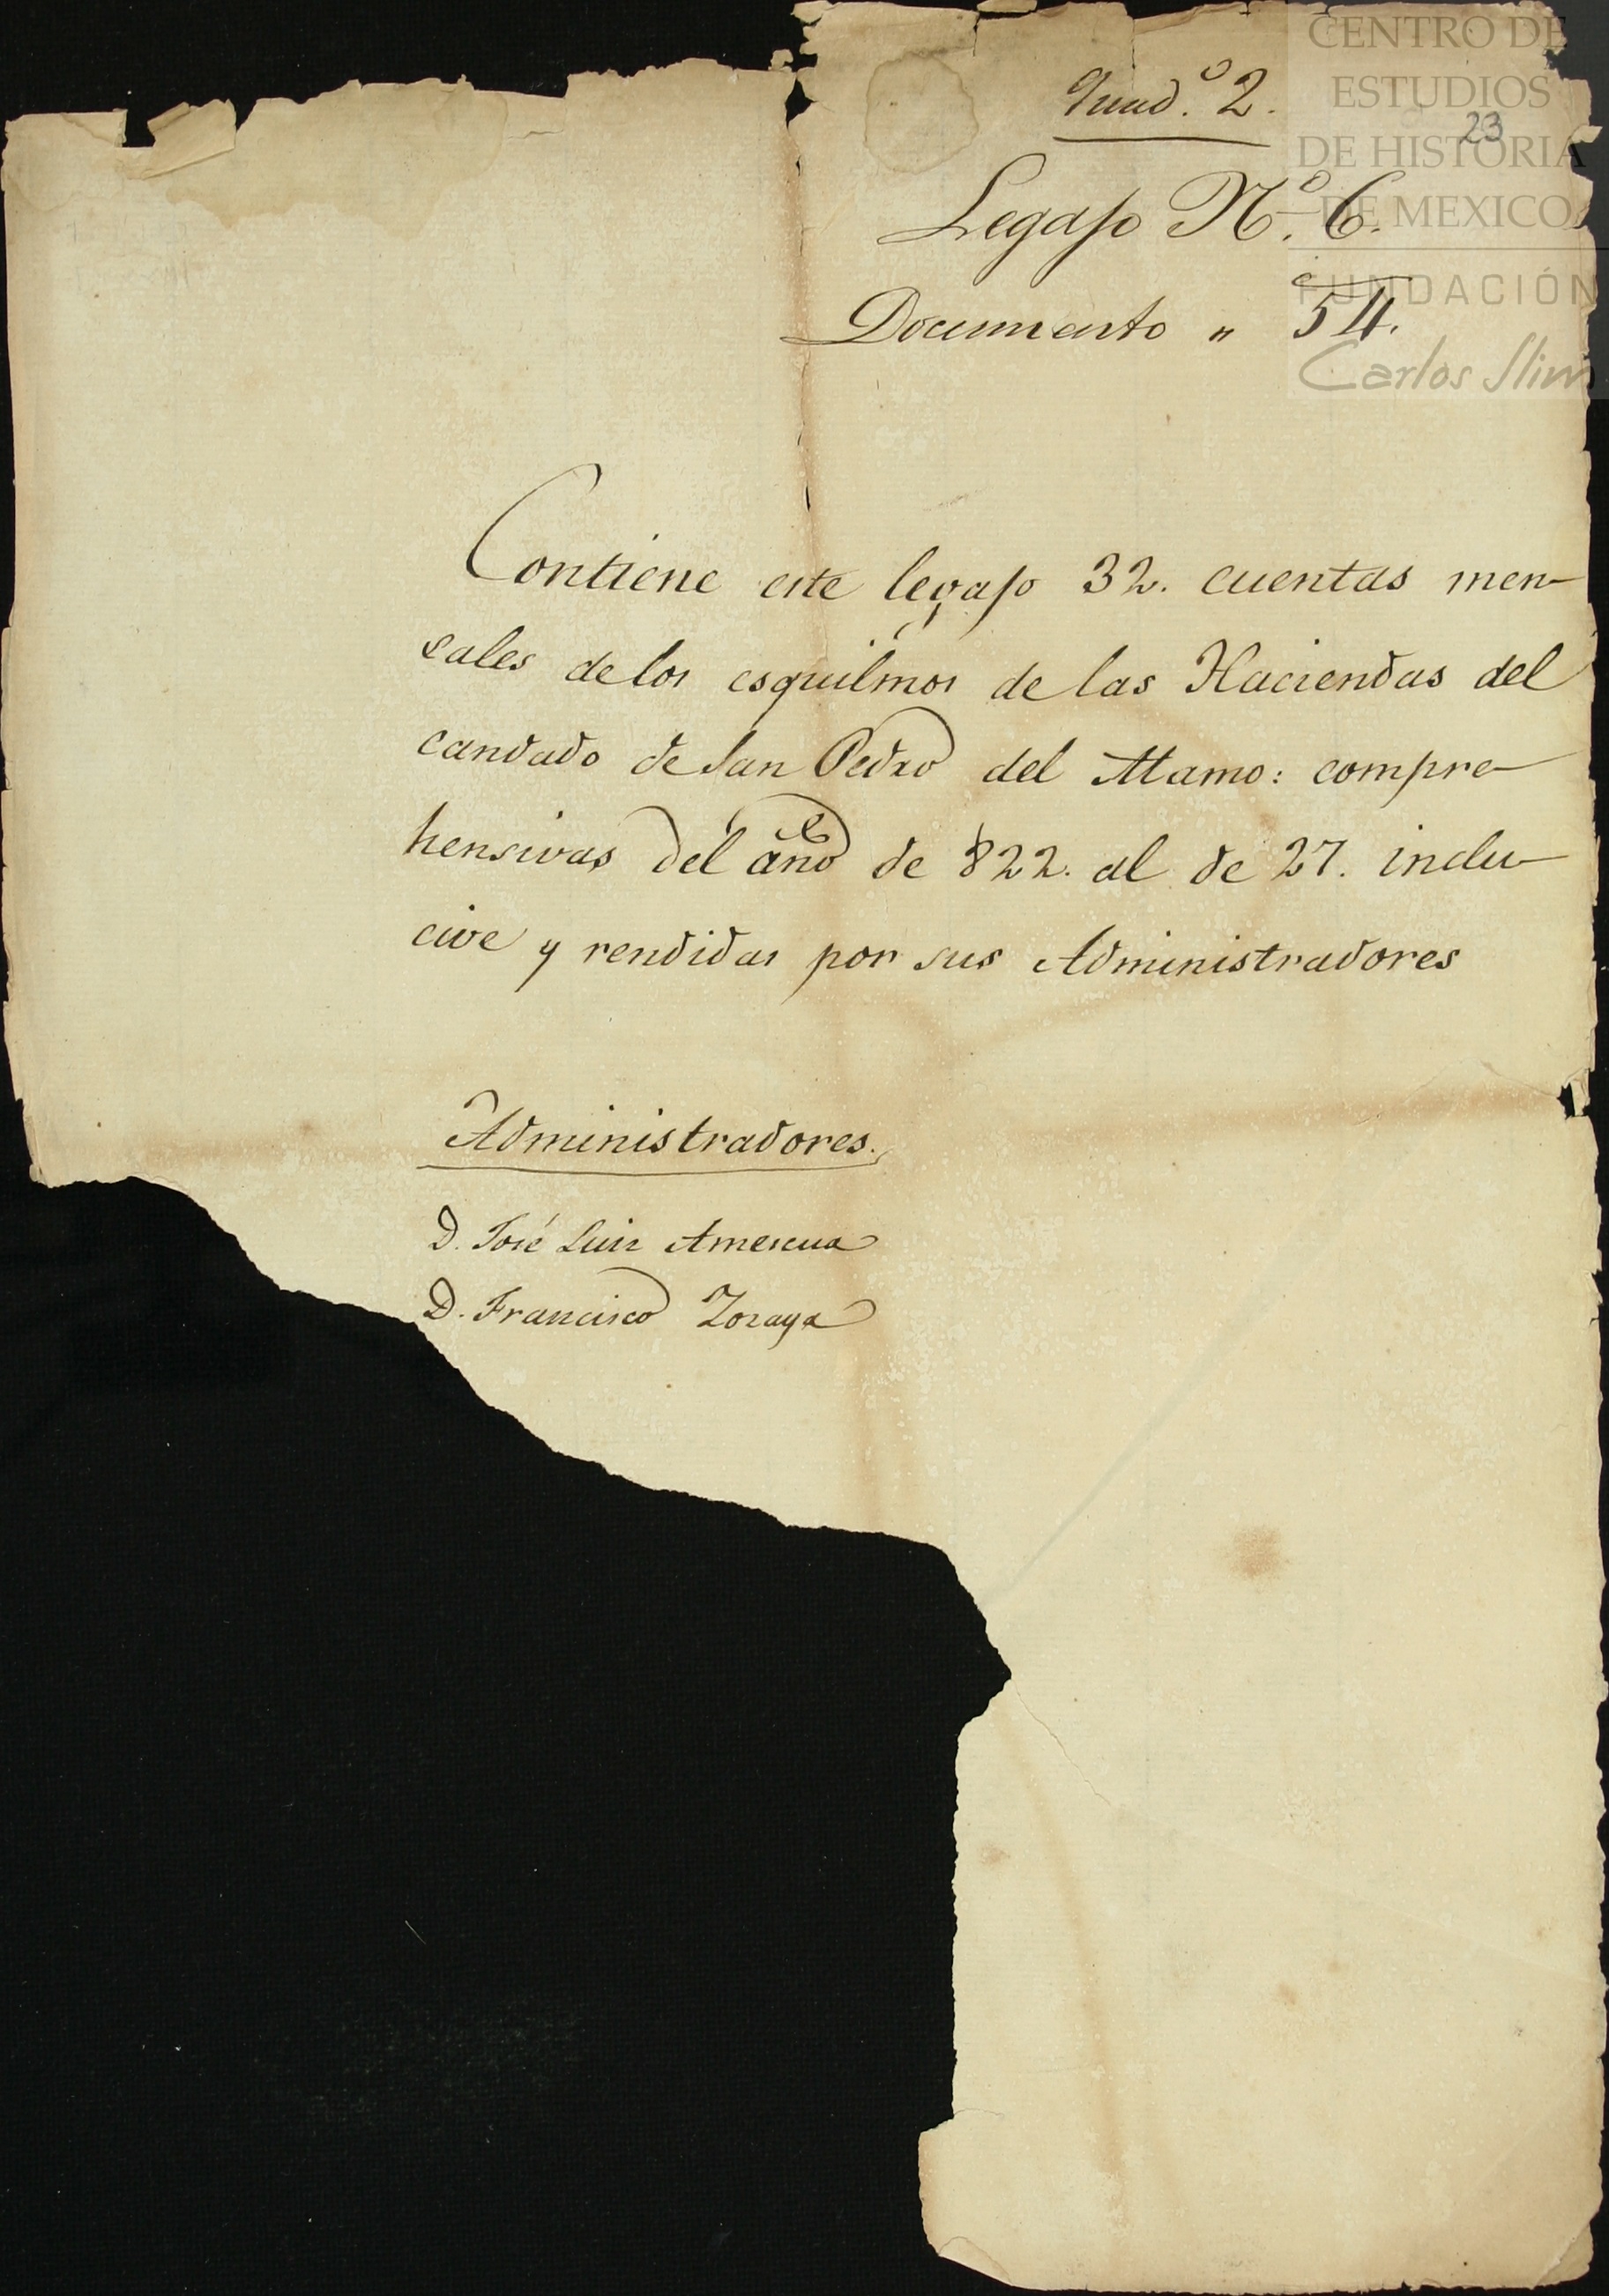 Quad.º 2.
23
Legajo N.º 6.
Documento " 54.
Contiene este legajo 32. cuentas men-
sales de los esquilmos de las Haciendas del
candado de San Pedro del Alamo: compre-
hensivas del año de 822. al de 27. inclu-
cive y rendidas por sus Administradores
Administradores.
D. José Luis Amescua
D. Francisco Zoraya
CENTRO DE
ESTUDIOS
DE HISTORIA
DE MEXICO
FUNDACIÓN
Carlos Slim